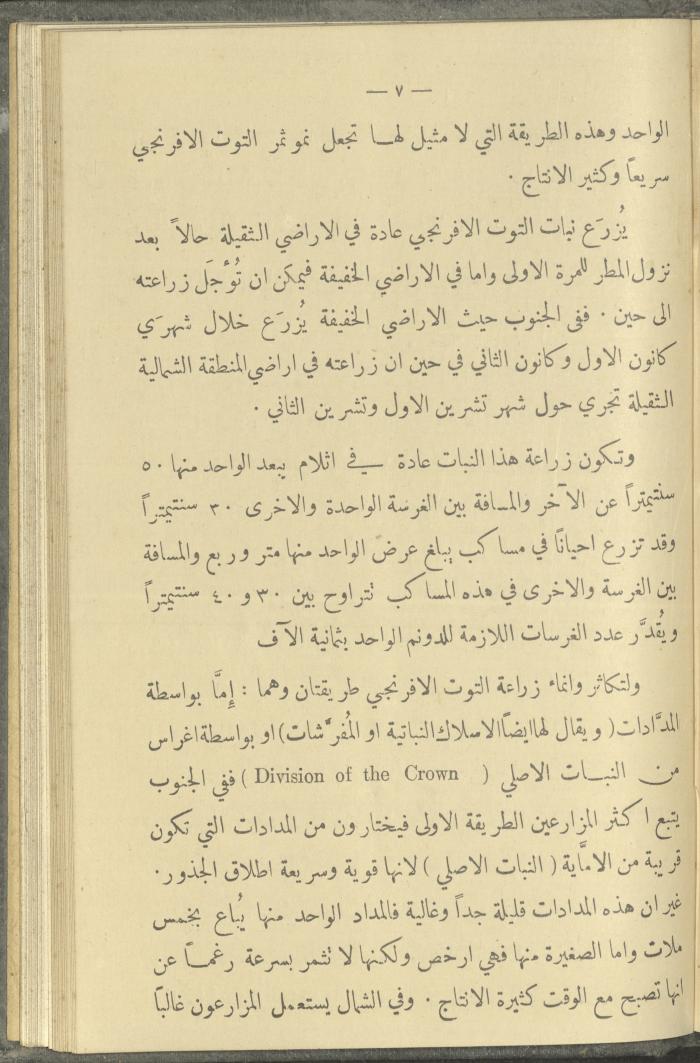 — ٧ —
الواحد وهذه الطريقة التي لا مثيل لهـا تجعل نمو ثمر التوت الافرنجي
سريعاً وكثير الانتاج .
يُزرَع نبات التوت الافرنجي عادة في الاراضي الثقيلة حالاً بعد
نزول المطر للمرة الاولى واما في الاراضي الخفيفة فيمكن ان تُوْجَل زراعته
الى حين . ففى الجنوب حيث الاراضي الخفيفة يُزرَع خلال شهرَي
كانون الاول وكانون الثاني في حين ان زراعته في اراضي المنطقة الشمالية
الثقيلة تجري حول شهر تشرين الاول وتشرين الثاني .
وتكون زراعة هذا النبات عادة في اثلام يبعد الواحد منها ٥٠
سنتيمتراً عن الآخر والمسافة بين الغرسة الواحدة والاخرى ٣٠ سنتيمتراً
وقد تزرع احياناً في مساكب يبلغ عرض الواحد منها متر وربع والمسافة
بين الغرسة والاخرى في هذه المساكب تتراوح بين ٣٠ و ٤٠ سنتيمتراً
ويُقدَّر عدد الغرسات اللازمة للدونم الواحد بثمانية الآف
ولتكاثر وانماء زراعة التوت الافرنجي طريقتان وهما : إمَّا بواسطة
المدَّادات ( ويقال لها ايضاً الاسلاك النباتية او المُفرَّشات ) او بواسطة اغراس
من النبـات الاصلي ( Division of the Crown ) ففي الجنوب
يتبع اكثر المزارعين الطريقة الاولى فيختارون من المدادات التي تكون
قريبة من الامَّاية ( النبات الاصلي ) لانها قوية وسريعة اطلاق الجذور .
غير ان هذه المدادات قليلة جداً وغالية فالمداد الواحد منها يُباع بخمس
ملات واما الصغيرة منها فهي ارخص ولكنها لا تثمر بسرعة رغمـاً عن
انها تصبح مع الوقت كثيرة الانتاج . وفي الشمال يستعمل المزارعون غالباً